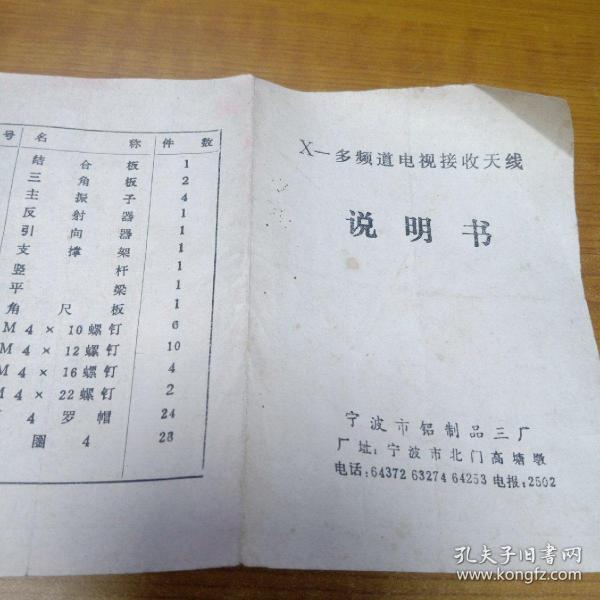 号 名 称 件 数
结 合 板 1
三 角 板 2
主 振 子 4
反 射 器 1
引 向 器 1
支 撑 架 1
竖 杆 1
平 梁 1
角 尺 板 1
M 4 × 10 螺 钉 6
M 4 × 12 螺 钉 10
M 4 × 16 螺 钉 4
M 4 × 22 螺 钉 2
4 罗 帽 24
圈 4 28
X—多频道电视接收天线
说明书
宁波市铝制品三厂
厂址:宁波市北门高塘墩
电话:64372 63274 64253 电报:2502
孔夫子旧书网
www.kongfz.com